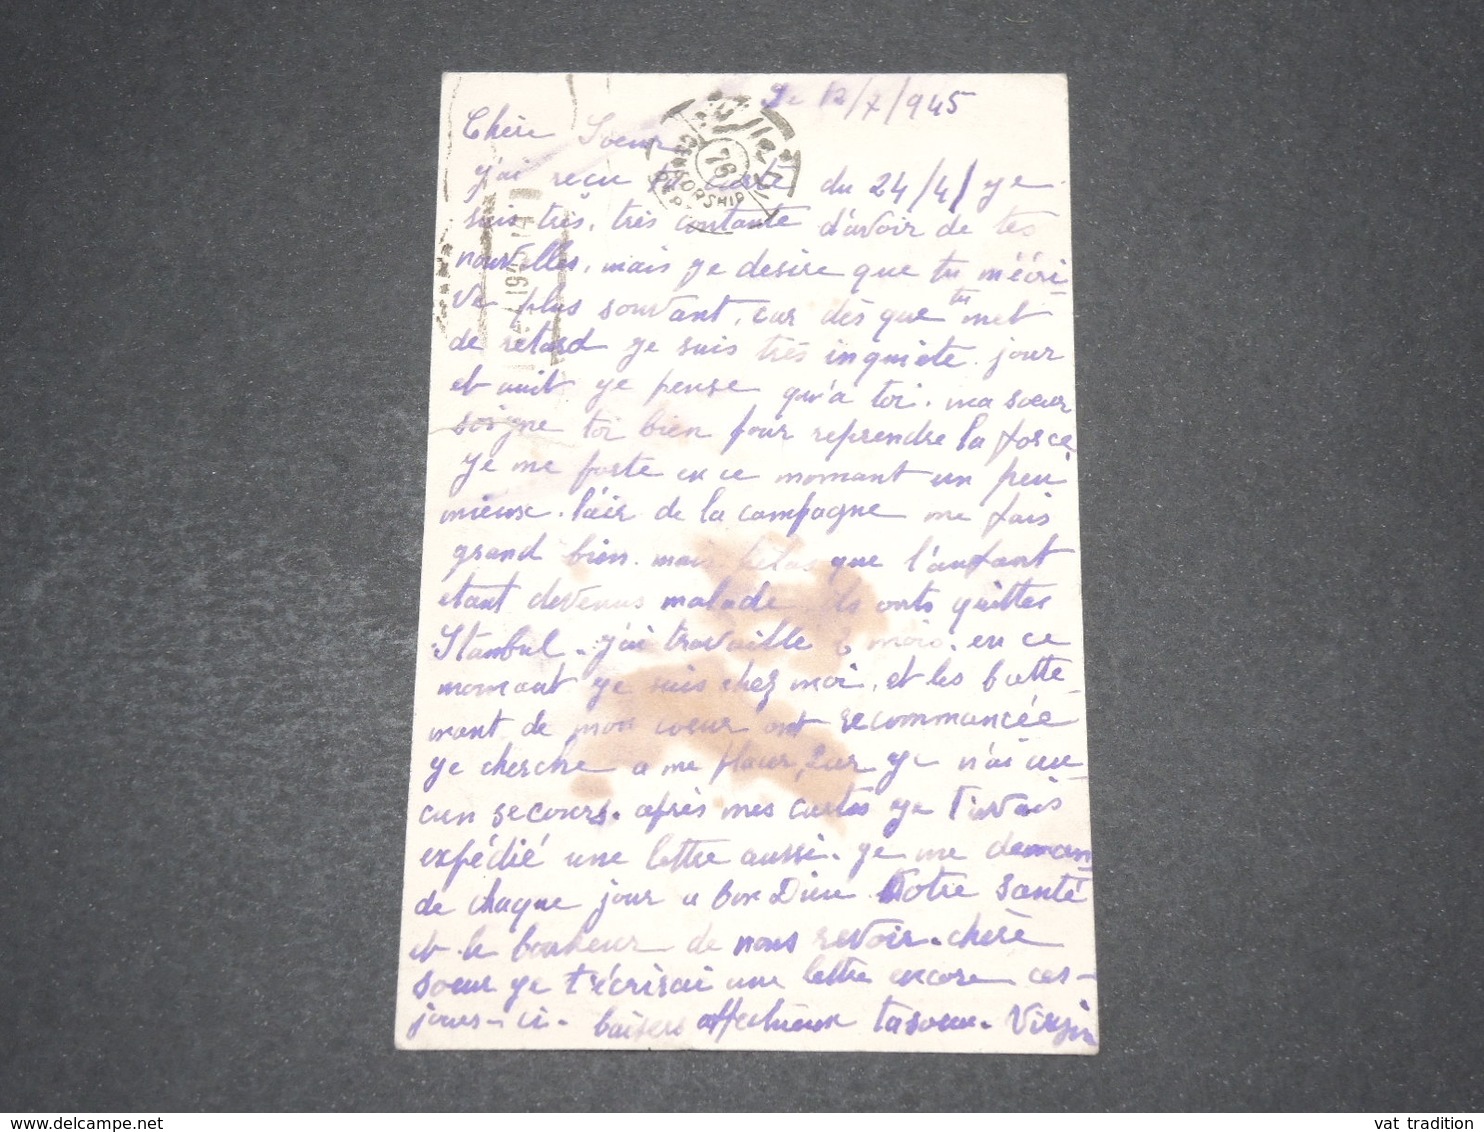 Le 12/7/945
Chère Soeur
j'ai reçu ta carte du 24/4/ ye
suis très, très contante d'avoir de tes
nouvelles, mais ye desire que tu m'écri-
ve plus souvant, car dès que tu met
de retard ye suis très inquiete. jour
et nuit ye pense qu'a toi. ma soeur
soigne toi bien pour reprendre la force
ye me porte en ce momant un peu
mieuse. l'air de la campagne me fais
grand bien. mais helas que l'anfant
etant devenus malade ils onts quitter
Stanbul. j'ai travaille 2 mois. en ce
momant ye suis chez moi, et les batte-
mant de mon coeur ont recommancée
ye cherche a me placer, car ye n'ai au-
cun secours. après mes cartes ye t'avais
expédié une lettre aussi. ye me deman
de chaque jour a bon Dieu Votre santé
et le bonheur de nous revoir. chère
soeur ye t'écrirai une lettre encore ces-
jours-ci. baisers affectueux tasoeur. Virgin
76
vat tradition